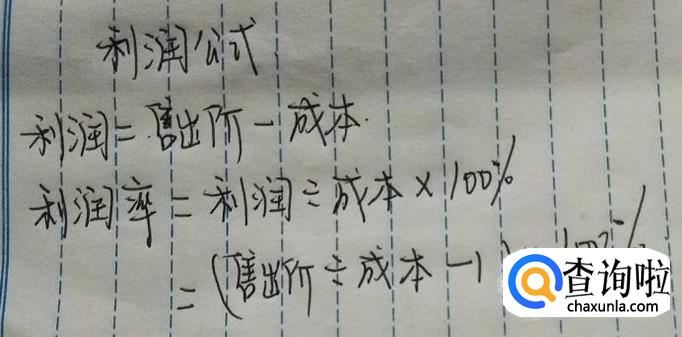 利润公式
利润=售出价-成本.
利润率=利润÷成本×100%
=(售出价÷成本-1)×100%
查询啦
chaxunla.com